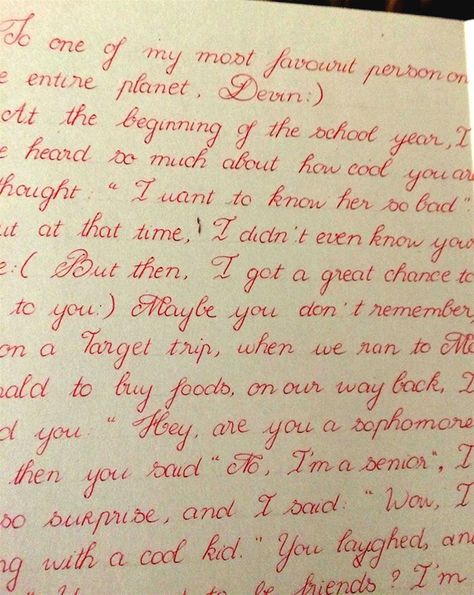 To one of my most favourit person on
e entire planet, Devin:)
At the beginning of the school year, I
e heard so much about how cool you are
thought: "I want to know her so bad"
ut at that time, I didn't even know your
e:( But then, I got a great chance to
to you:) Maybe you don't remember,
on a Target trip, when we ran to Mc
nald to buy foods, on our way back, I
d you: "Hey, are you a sophomore
then you said "No, I'm a senior", I
so surprise, and I said: "Wow, I
ng with a cool kid." You layghed, and
to be friends? I'm